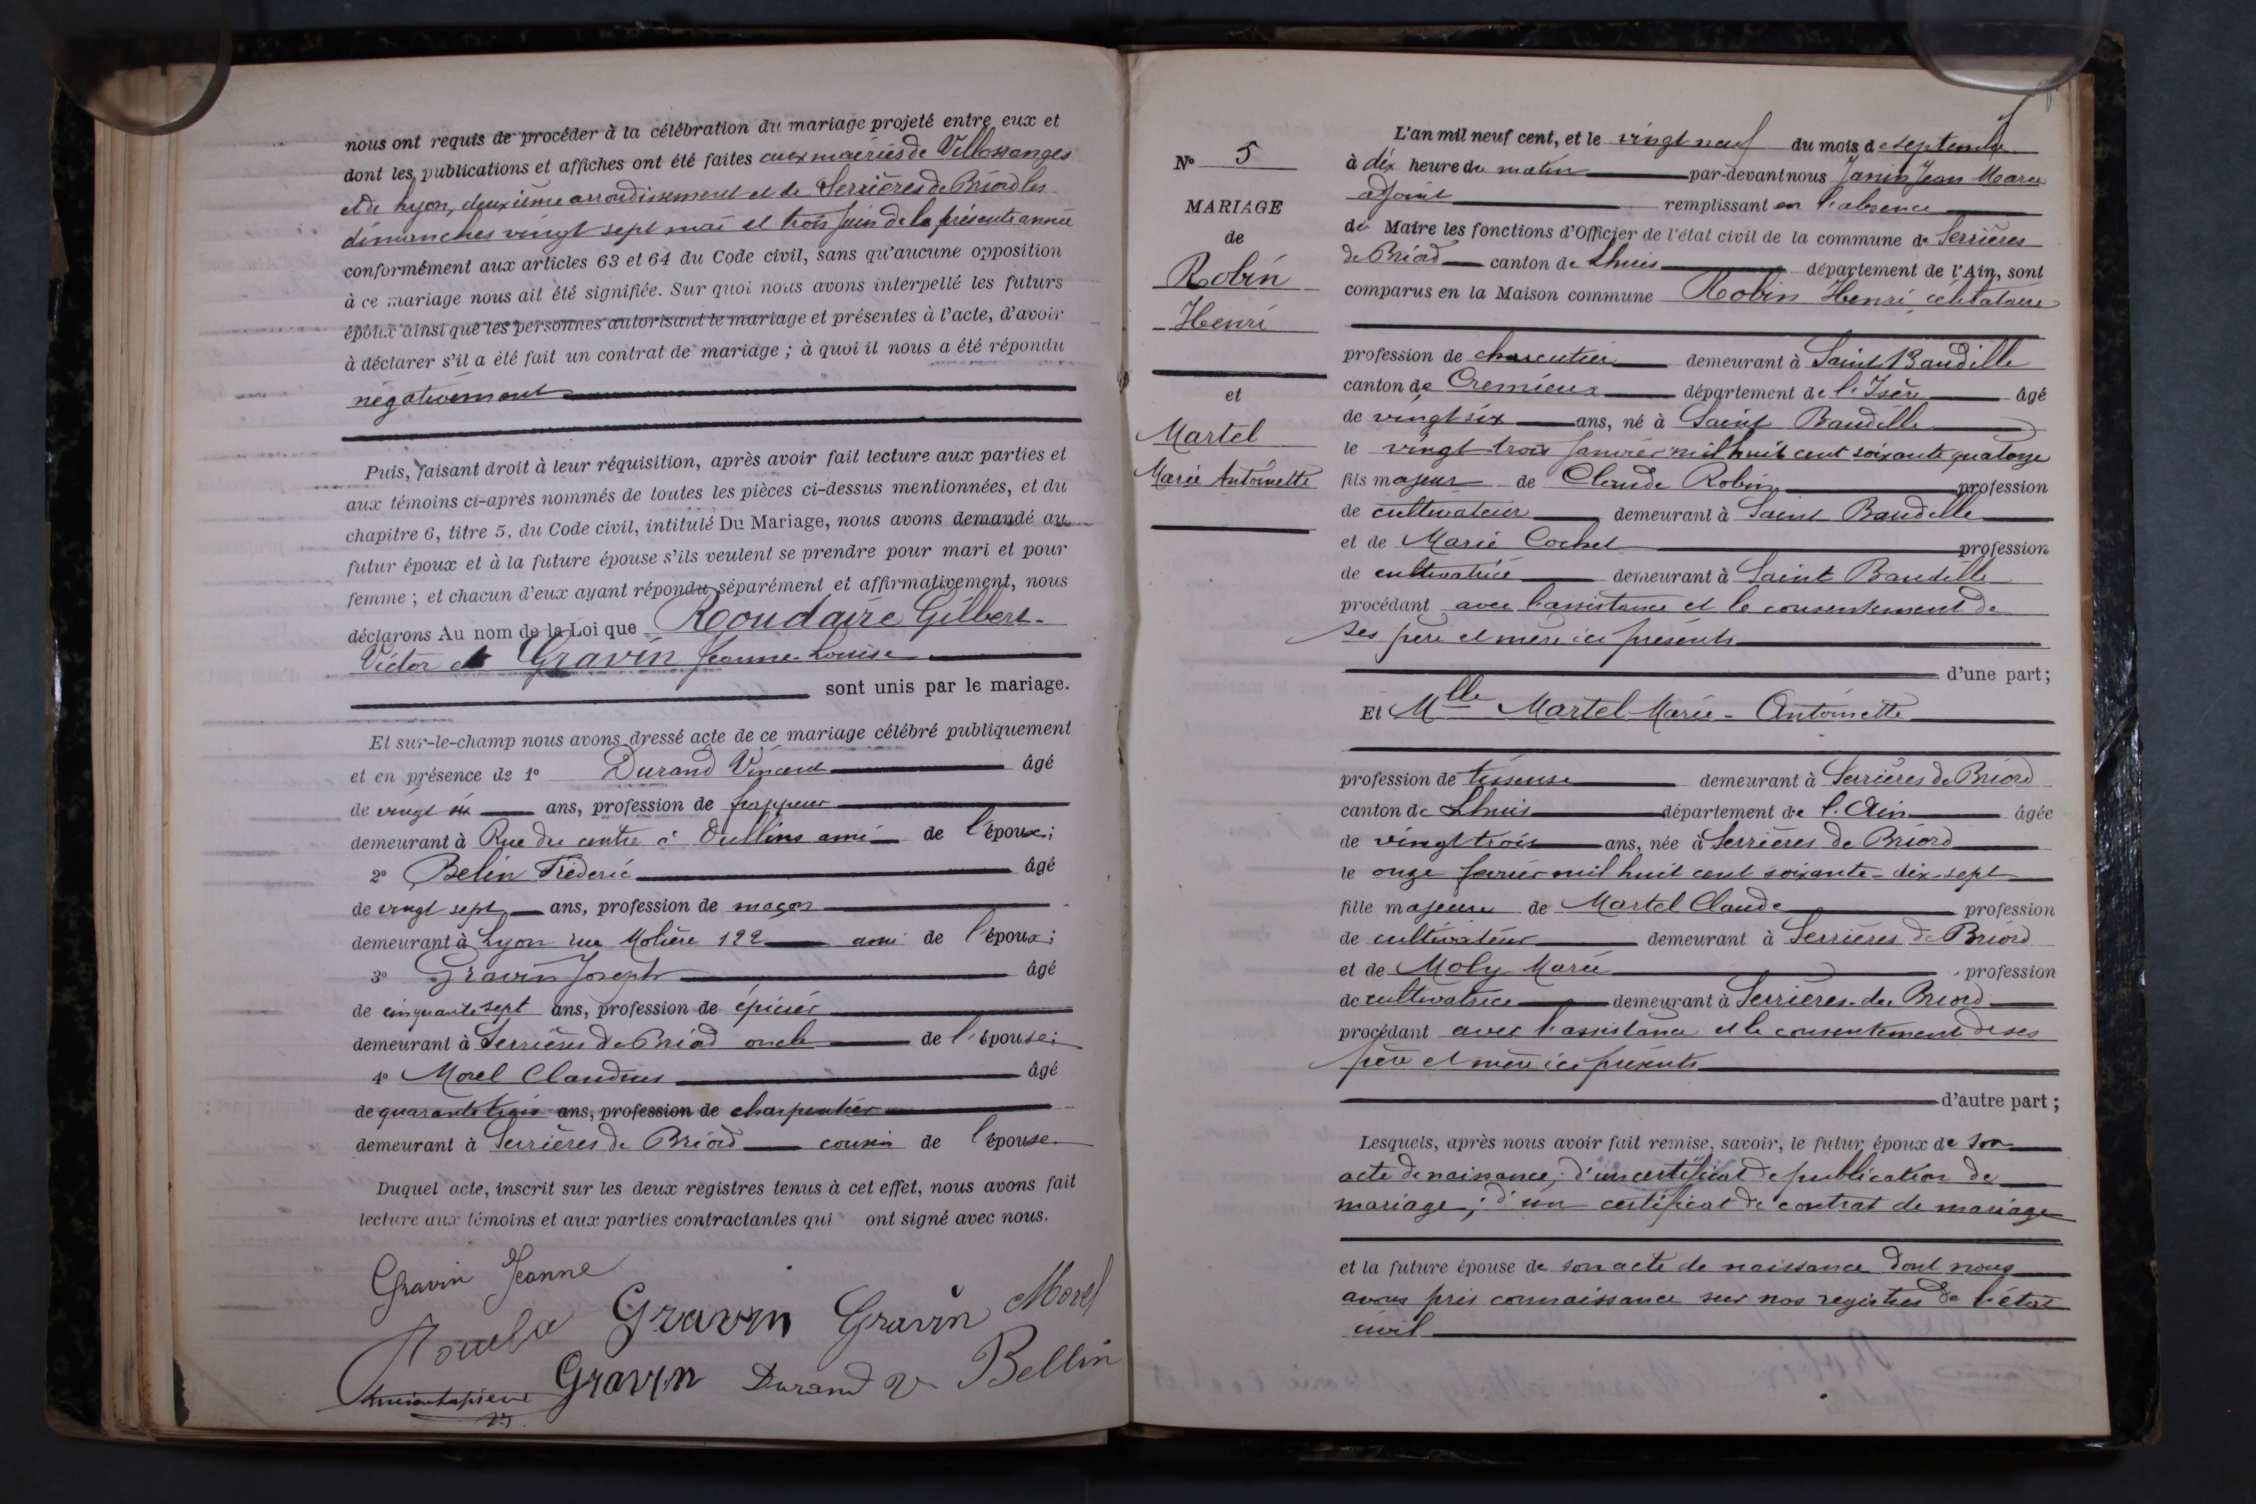 nous ont requis de procéder à la célébration du mariage projeté entre eux et
dont les publications et affiches ont été faites aux mairies de Villossanges
et de Lyon, deuxième arrondissement et de Serrières de Briord les
dimanches vingt sept mai et trois juin de la présente année
conformément aux articles 63 et 64 du Code civil, sans qu'aucune opposition
à ce mariage nous ait été signifiée. Sur quoi nous avons interpellé les futurs
époux ainsi que les personnes autorisant le mariage et présentes à l'acte, d'avoir
à déclarer s'il a été fait un contrat de mariage ; à quoi il nous a été répondu
négativement
Puis, faisant droit à leur réquisition, après avoir fait lecture aux parties et
aux témoins ci-après nommés de toutes les pièces ci-dessus mentionnées, et du
chapitre 6, titre 5, du Code civil, intitulé Du Mariage, nous avons demandé au
futur époux et à la future épouse s'ils veulent se prendre pour mari et pour
femme ; et chacun d'eux ayant répondu séparément et affirmativement, nous
déclarons Au nom de la Loi que Roudaire Gilbert-
Victor et Gravin Jeanne-Louise
sont unis par le mariage.
Et sur-le-champ nous avons dressé acte de ce mariage célébré publiquement
et en présence de 1º Durand Vincent âgé
de vingt six ans, profession de frappeur
demeurant à Rue du centre à Oullins ami de l'époux;
2º Belin Fréderic âgé
de vingt sept ans, profession de maçon
demeurant à Lyon rue Molière 122 ami de l'époux;
3º Gravin Joseph âgé
de cinquante sept ans, profession de épicier
demeurant à Serrières de Briord oncle de l'épouse;
4º Morel Claudius âgé
de quarante trois ans, profession de charpentier
demeurant à Serrières de Briord cousin de l'épouse
Duquel acte, inscrit sur les deux registres tenus à cet effet, nous avons fait
lecture aux témoins et aux parties contractantes qui ont signé avec nous.
Gravin Jeanne
Gravin Gravin Morel
Gravin Durand V Bellin
Nº 5
MARIAGE
de
Robin
Henri
et
Martel
Marie Antoinette
L'an mil neuf cent, et le vingt neuf du mois de septembre
à dix heure du matin par-devant nous Janin Jean Marie
adjoint remplissant en l'absence
du Maire les fonctions d'Officier de l'état civil de la commune de Serrières
de Briord canton de Lhuis département de l'Ain, sont
comparus en la Maison commune Robin Henri célibataire
profession de charcutier demeurant à Saint Baudille
canton de Cremieux département de l'Isère âgé
de vingt six ans, né à Saint Baudille
le vingt trois Janvier mil huit cent soixante quatorze
fils majeur de Claude Robin profession
de cultivateur demeurant à Saint Baudille
et de Marie Cochet profession
de cultivatrice demeurant à Saint Baudille
procédant avec l'assistance et le consentement de
ses père et mère ici présents
d'une part;
Et Mlle Martel Marie-Antoinette
profession de tisseuse demeurant à Serrières de Briord
canton de Lhuis département de l'Ain âgée
de vingt trois ans, née à Serrières de Briord
le onze février mil huit cent soixante-dix-sept
fille majeure de Martel Claude profession
de cultivateur demeurant à Serrières de Briord
et de Moly Marie profession
de cultivatrice demeurant à Serrières-de Briord
procédant avec l'assistance et le consentement de ses
père et mère ici présents
d'autre part ;
Lesquels, après nous avoir fait remise, savoir, le futur époux de son
acte de naissance; d'un certificat de publication de
mariage; d'un certificat de contrat de mariage
et la future épouse de son acte de naissance dont nous
avons pris connaissance sur nos registres de l'état
civil